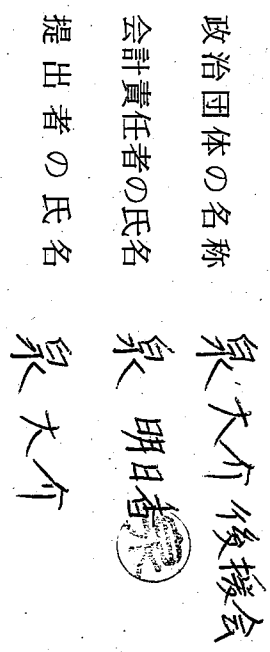 政治団体の名称 泉大介後援会
会計責任者の氏名 泉 明日香
提出者の氏名 泉 大介